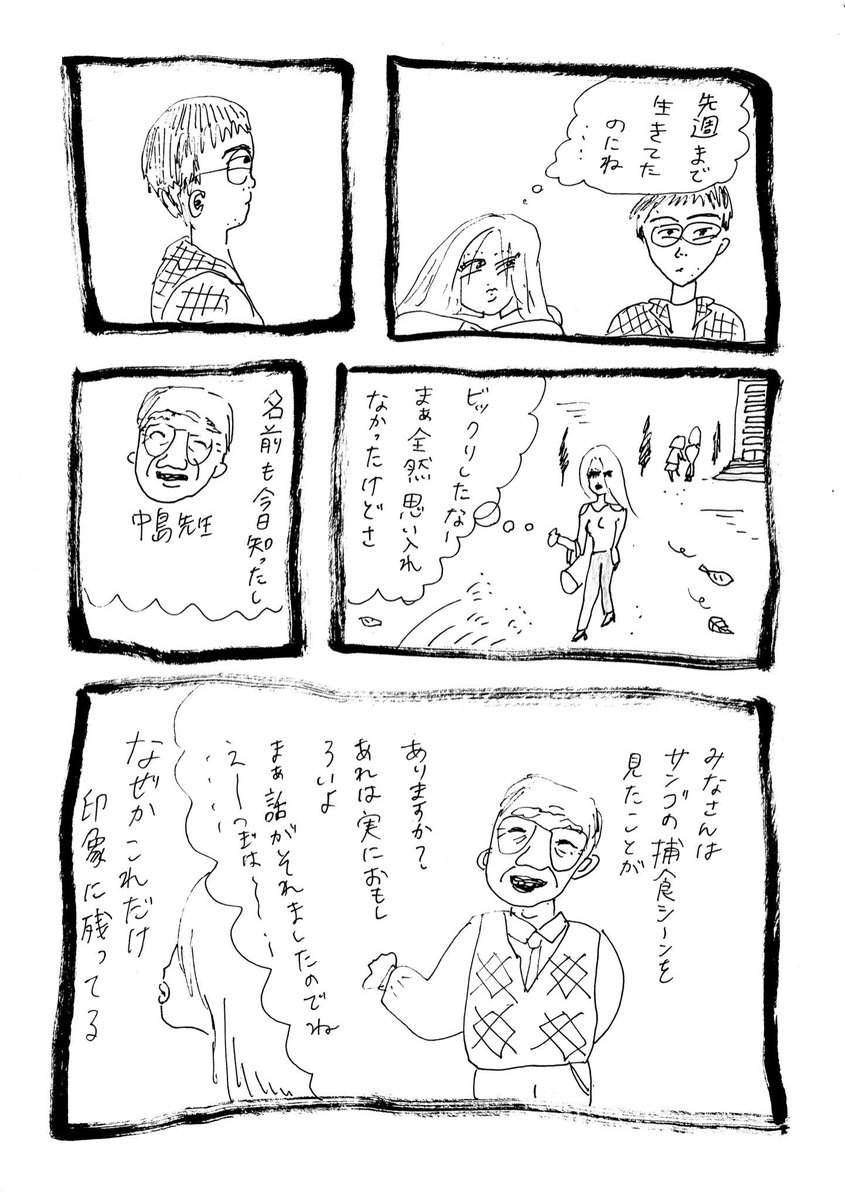 先週まで
生きてた
のにね
…
ビックリしたなー
まぁ全然思い入れ
なかったけどさ
名前も今日知ったし
中島先生
みなさんは
サンゴの捕食シーンを
見たことが
ありますか?
あれは実におもし
ろいよ
まぁ話がそれましたのでね
えーつぎは〜…
……
なぜかこれだけ
印象に残ってる